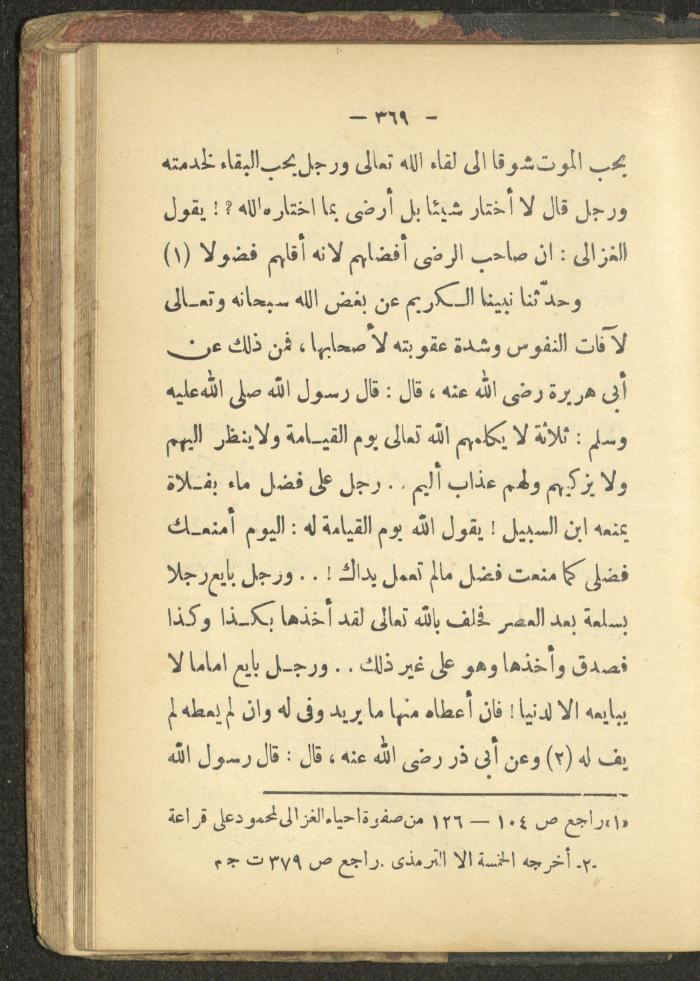 — ٣٦٩ —
يحب الموت شوقا الى لقاء الله تعالى ورجل يحب البقاء لخدمته
ورجل قال لا أختار شيئا بل أرضى بما اختاره الله ؟! يقول
الغزالى : ان صاحب الرضى أفضلهم لانه أقلهم فضولا (١)
وحدّثنا نبينا الكريم عن بغض الله سبحانه وتعالى
لآفات النفوس وشدة عقوبته لأصحابها ، فمن ذلك عن
أبى هريرة رضى الله عنه ، قال : قال رسول الله صلى الله عليه
وسلم : ثلاثة لا يكلمهم الله تعالى يوم القيامة ولا ينظر اليهم
ولا يزكيهم ولهم عذاب أليم .. رجل على فضل ماء بفلاة
يمنعه ابن السبيل ! يقول الله يوم القيامة له : اليوم أمنعك
فضلى كما منعت فضل مالم تعمل يداك ! .. ورجل بايع رجلا
بسلعة بعد العصر فحلف بالله تعالى لقد أخذها بكذا وكذا
فصدق وأخذها وهو على غير ذلك .. ورجل بايع اماما لا
يبايعه الا لدنيا ! فان أعطاه منها ما يريد وفى له وان لم يعطه لم
يف له (٢) وعن أبى ذر رضى الله عنه ، قال : قال رسول الله
«١» راجع ص ١٠٤ — ١٢٦ من صفوة احياء الغزالى لمحمود على قراعة
-٢- أخرجه الخمسة الا الترمذى . راجع ص ٣٧٩ ت ج م